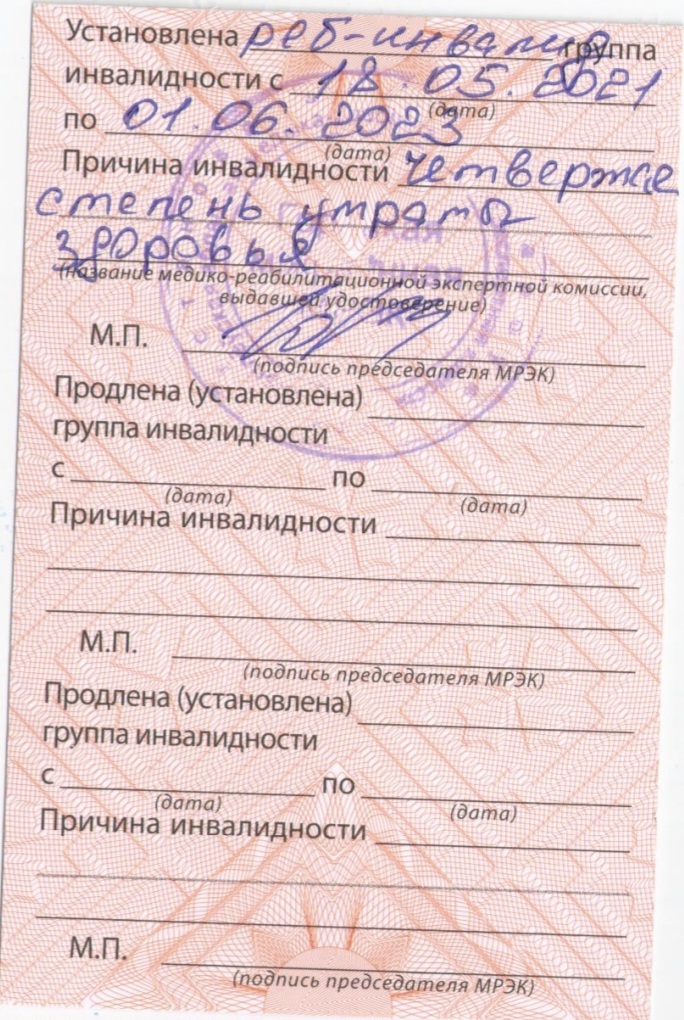 Установлена реб-инвалид группа
инвалидности с 18.05.2021
(дата)
по 01.06.2023
(дата)
Причина инвалидности четвертая
степень утраты
здоровья
(название медико-реабилитационной экспертной комиссии,
выдавшей удостоверение)
М.П.
(подпись председателя МРЭК)
Продлена (установлена)
группа инвалидности
с по
(дата) (дата)
Причина инвалидности
М.П.
(подпись председателя МРЭК)
Продлена (установлена)
группа инвалидности
с по
(дата) (дата)
Причина инвалидности
М.П.
(подпись председателя МРЭК)